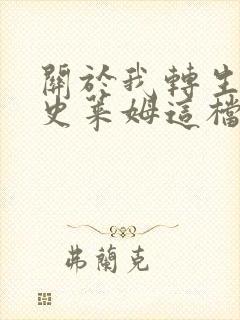 關於我轉生
史萊姆這檔
弗蘭克